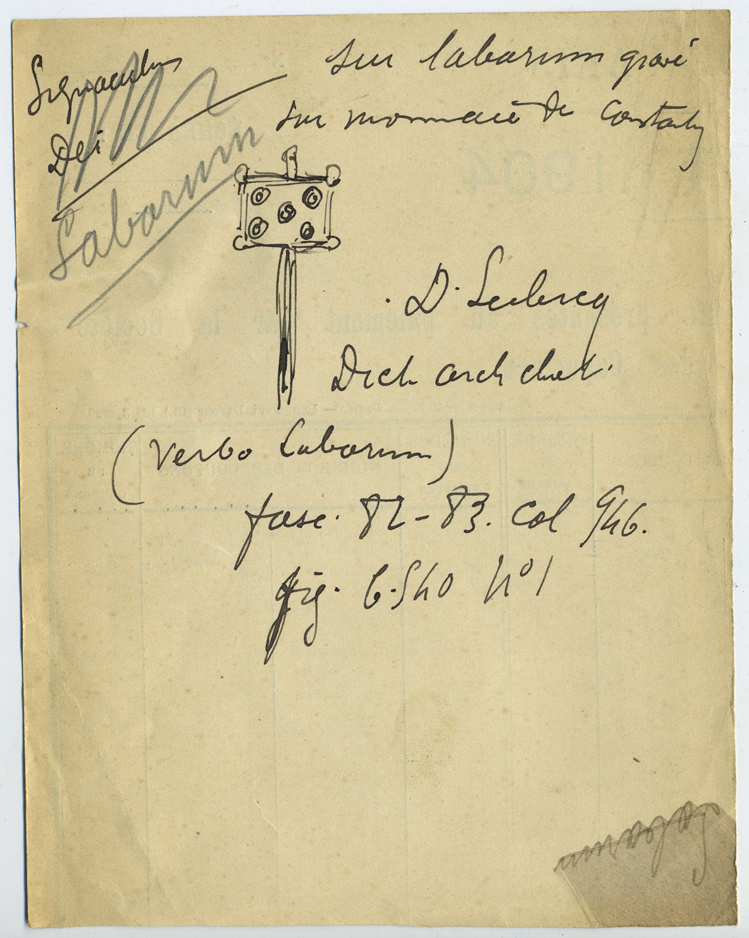 Signaculum
Dei
Labarum
sur labarum gravé
sur monnaie de Constantin
D. Leclercq
Dict arch chret.
(verbo Labarum)
fasc. 82-83. col 946.
fig. 6.540 n° 1
Labarum